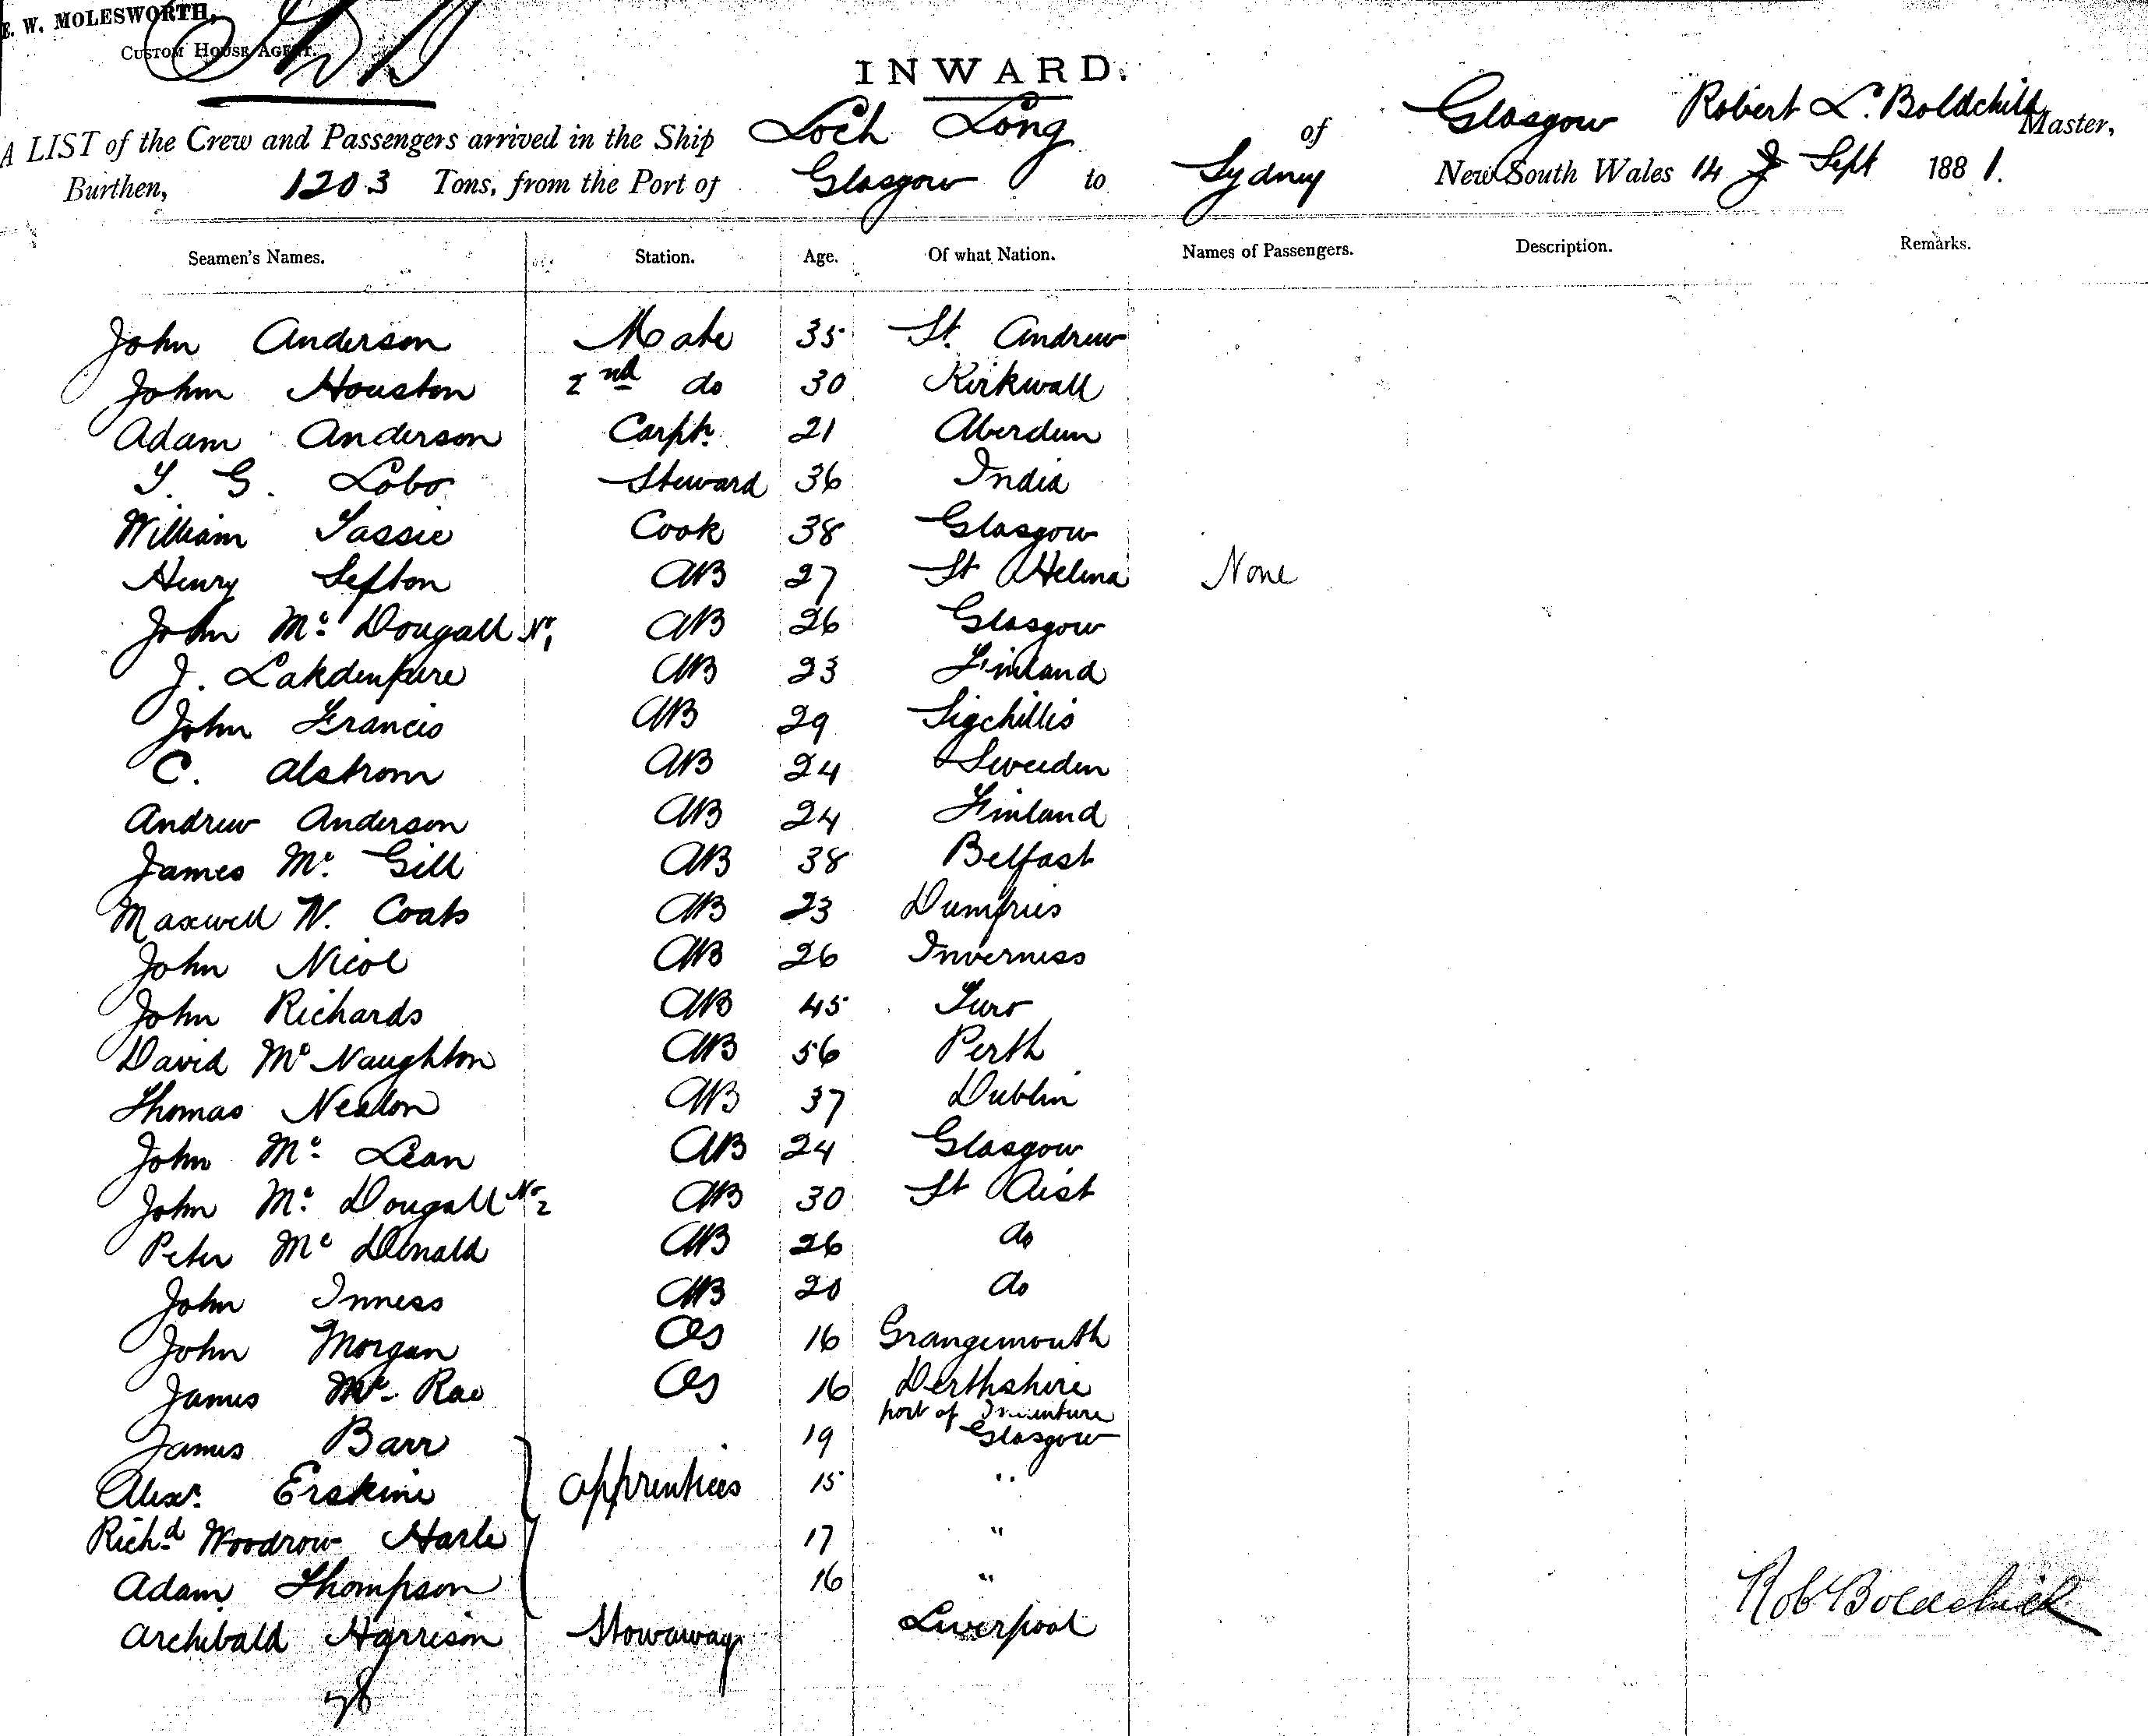 E. W. MOLESWORTH,
CUSTOM HOUSE AGENT.
INWARD.
A LIST of the Crew and Passengers arrived in the Ship Loch Long of Glasgow Robert L. Boldchild Master,
Burthen, 1203 Tons, from the Port of Glasgow to Sydney New South Wales 14 Sept 1881.
Seamen's Names. Station. Age. Of what Nation. Names of Passengers. Description. Remarks.
John Anderson Mate 35 St. Andrew
John Houston 2nd do 30 Kirkwall
Adam Anderson Carptr. 21 Aberdeen
T. G. Lobo Steward 36 India
William Tassie Cook 38 Glasgow
Henry Sefton AB 27 St Helena None
John Mc Dougall No 1 AB 26 Glasgow
J. AB 23 Finland
John Francis AB 29
C. Alstrom AB 24 Sweeden
Andrew Anderson AB 24 Finland
James Mc Gill AB 38 Belfast
Maxwell W. Coats AB 23 Dumfries
John Nicol AB 26 Inverness
John Richards AB 45 Turo
David Mc Naughton AB 56 Perth
Thomas Nealon AB 37 Dublin
John Mc Lean AB 24 Glasgow
John Mc Dougall No 2 AB 30 St Uist
Peter Mc Donald AB 26 do
John Inness AB 20 do
John Morgan OS 16 Grangemouth
James Mc Rae OS 16 Perthshire
port of Indenture
James Barr 19 Glasgow
Alexr. Erskine Apprentices 15 "
Richd Woodrow Harle 17 "
Adam Thompson 16 "
Archibald Harrison Stowaway Liverpool
28
Rob Boldchild